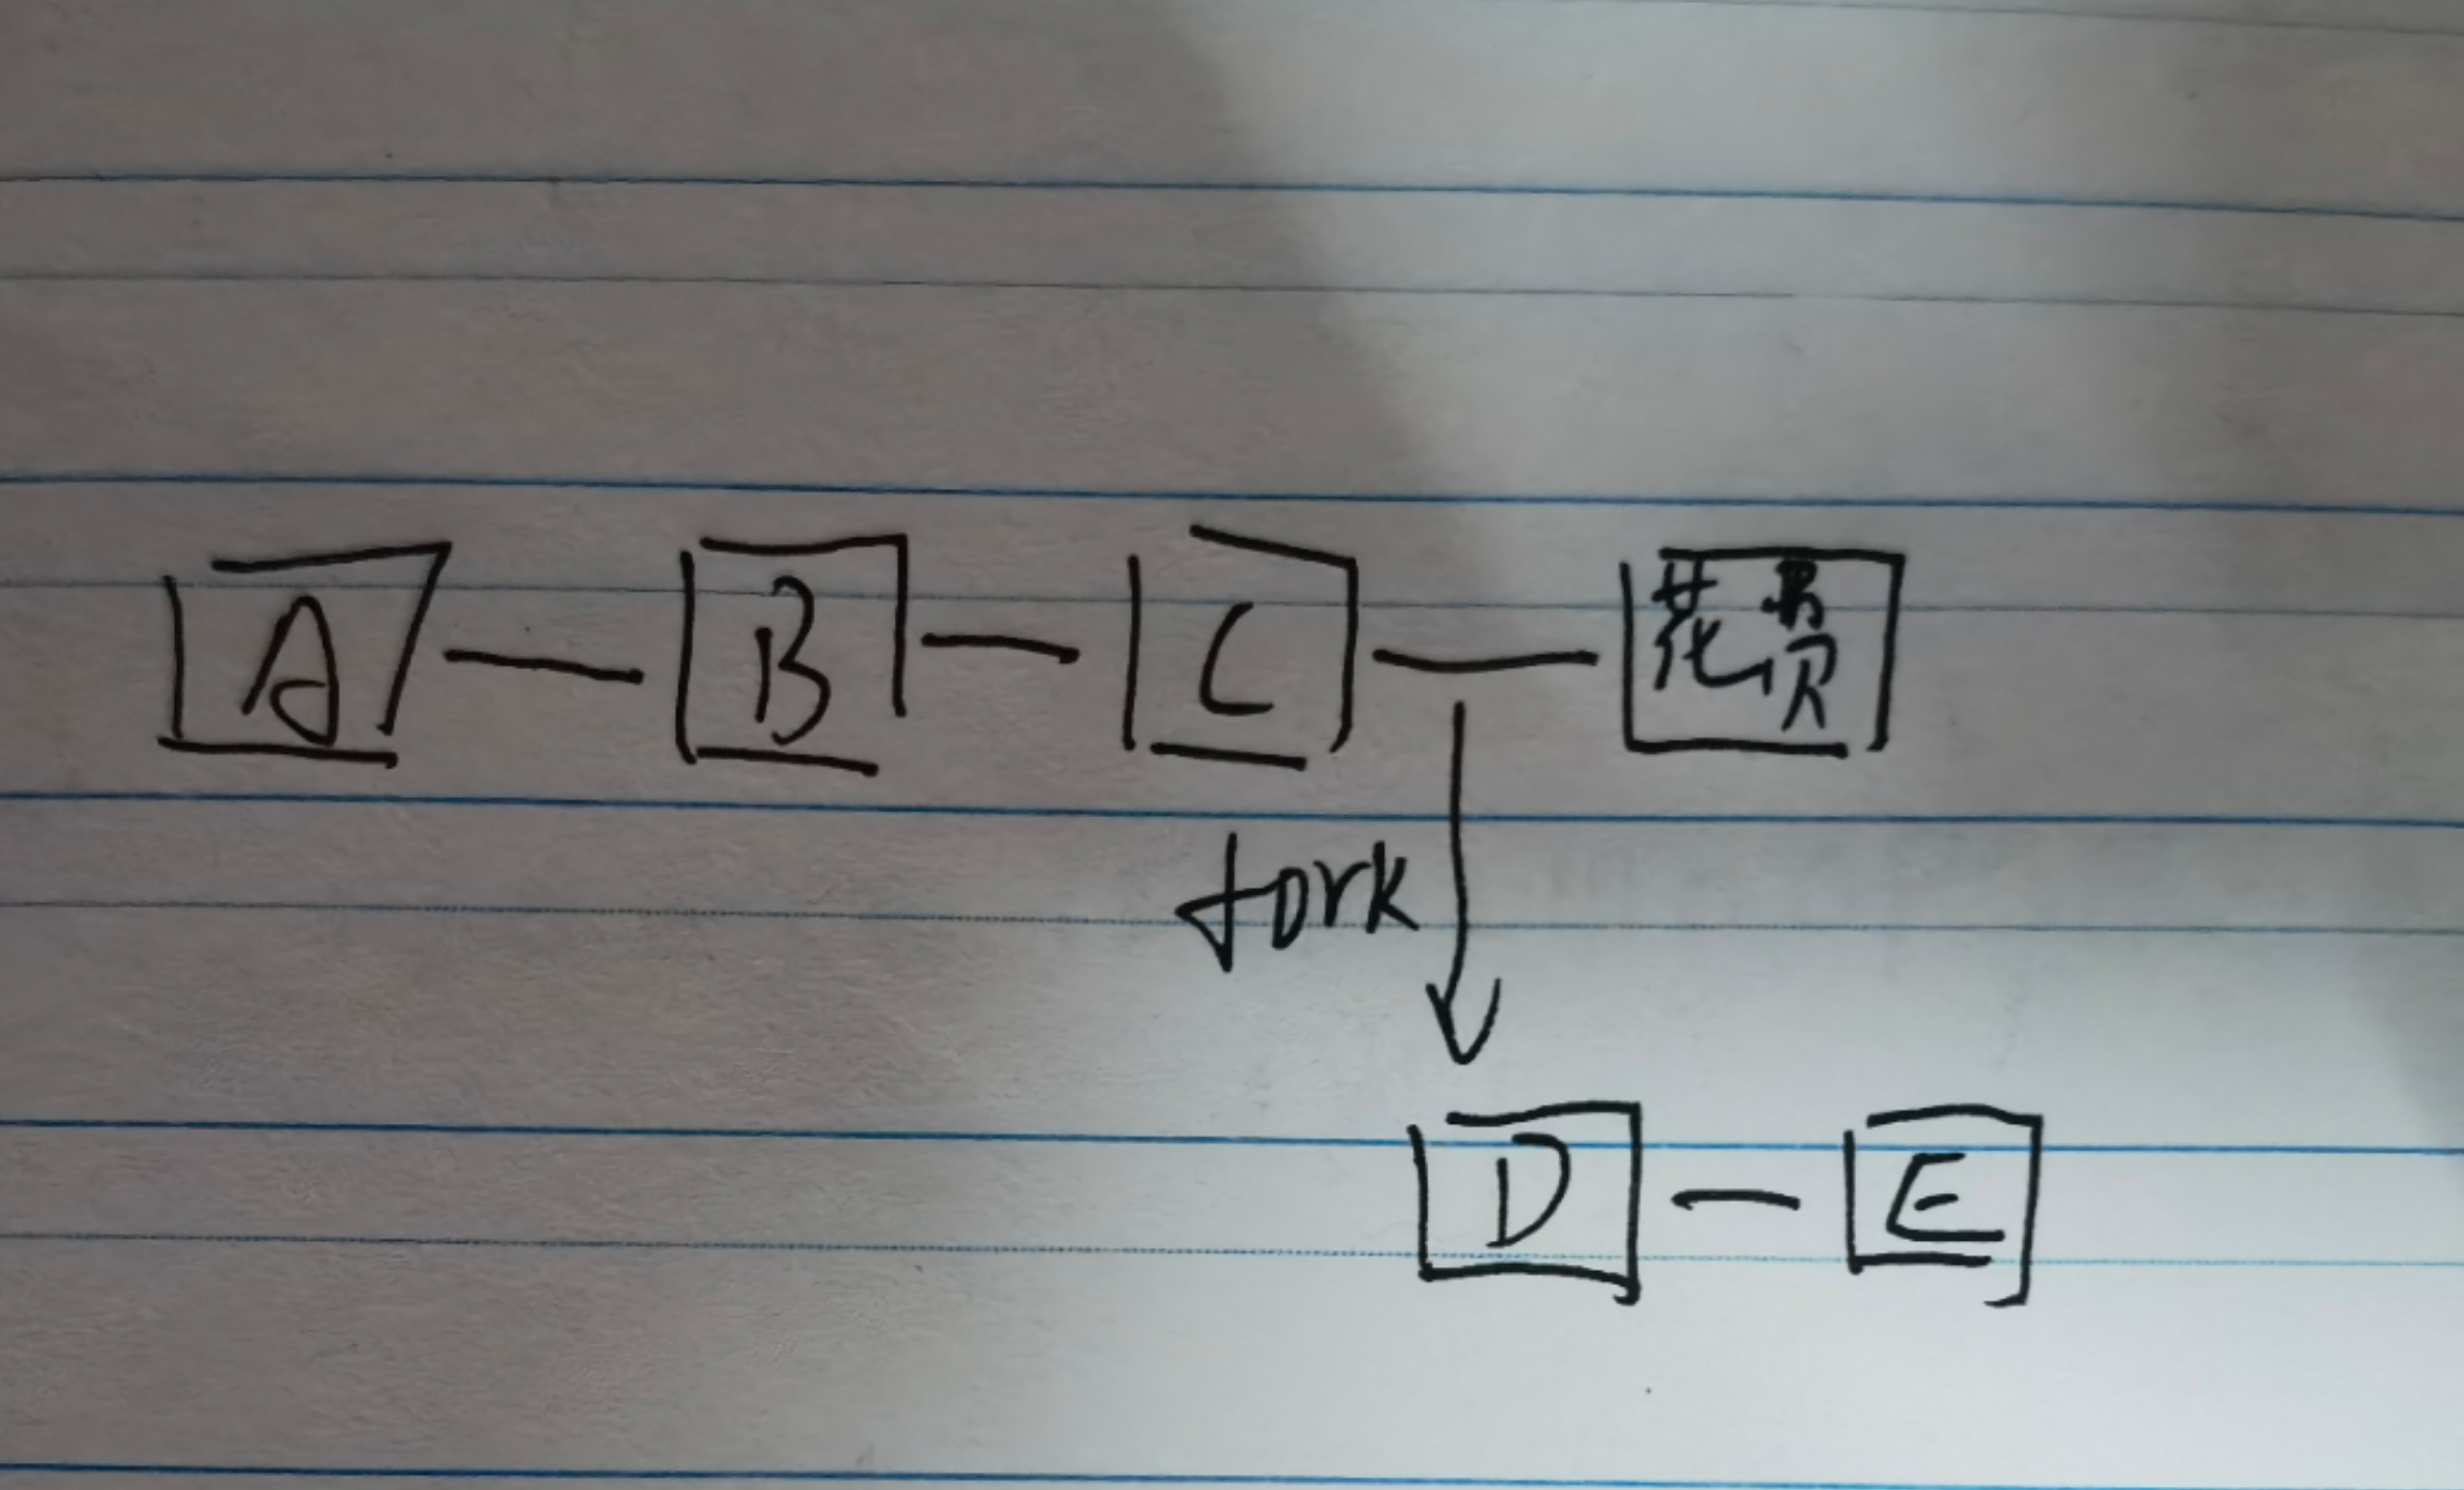 A B C 花费
fork
D E